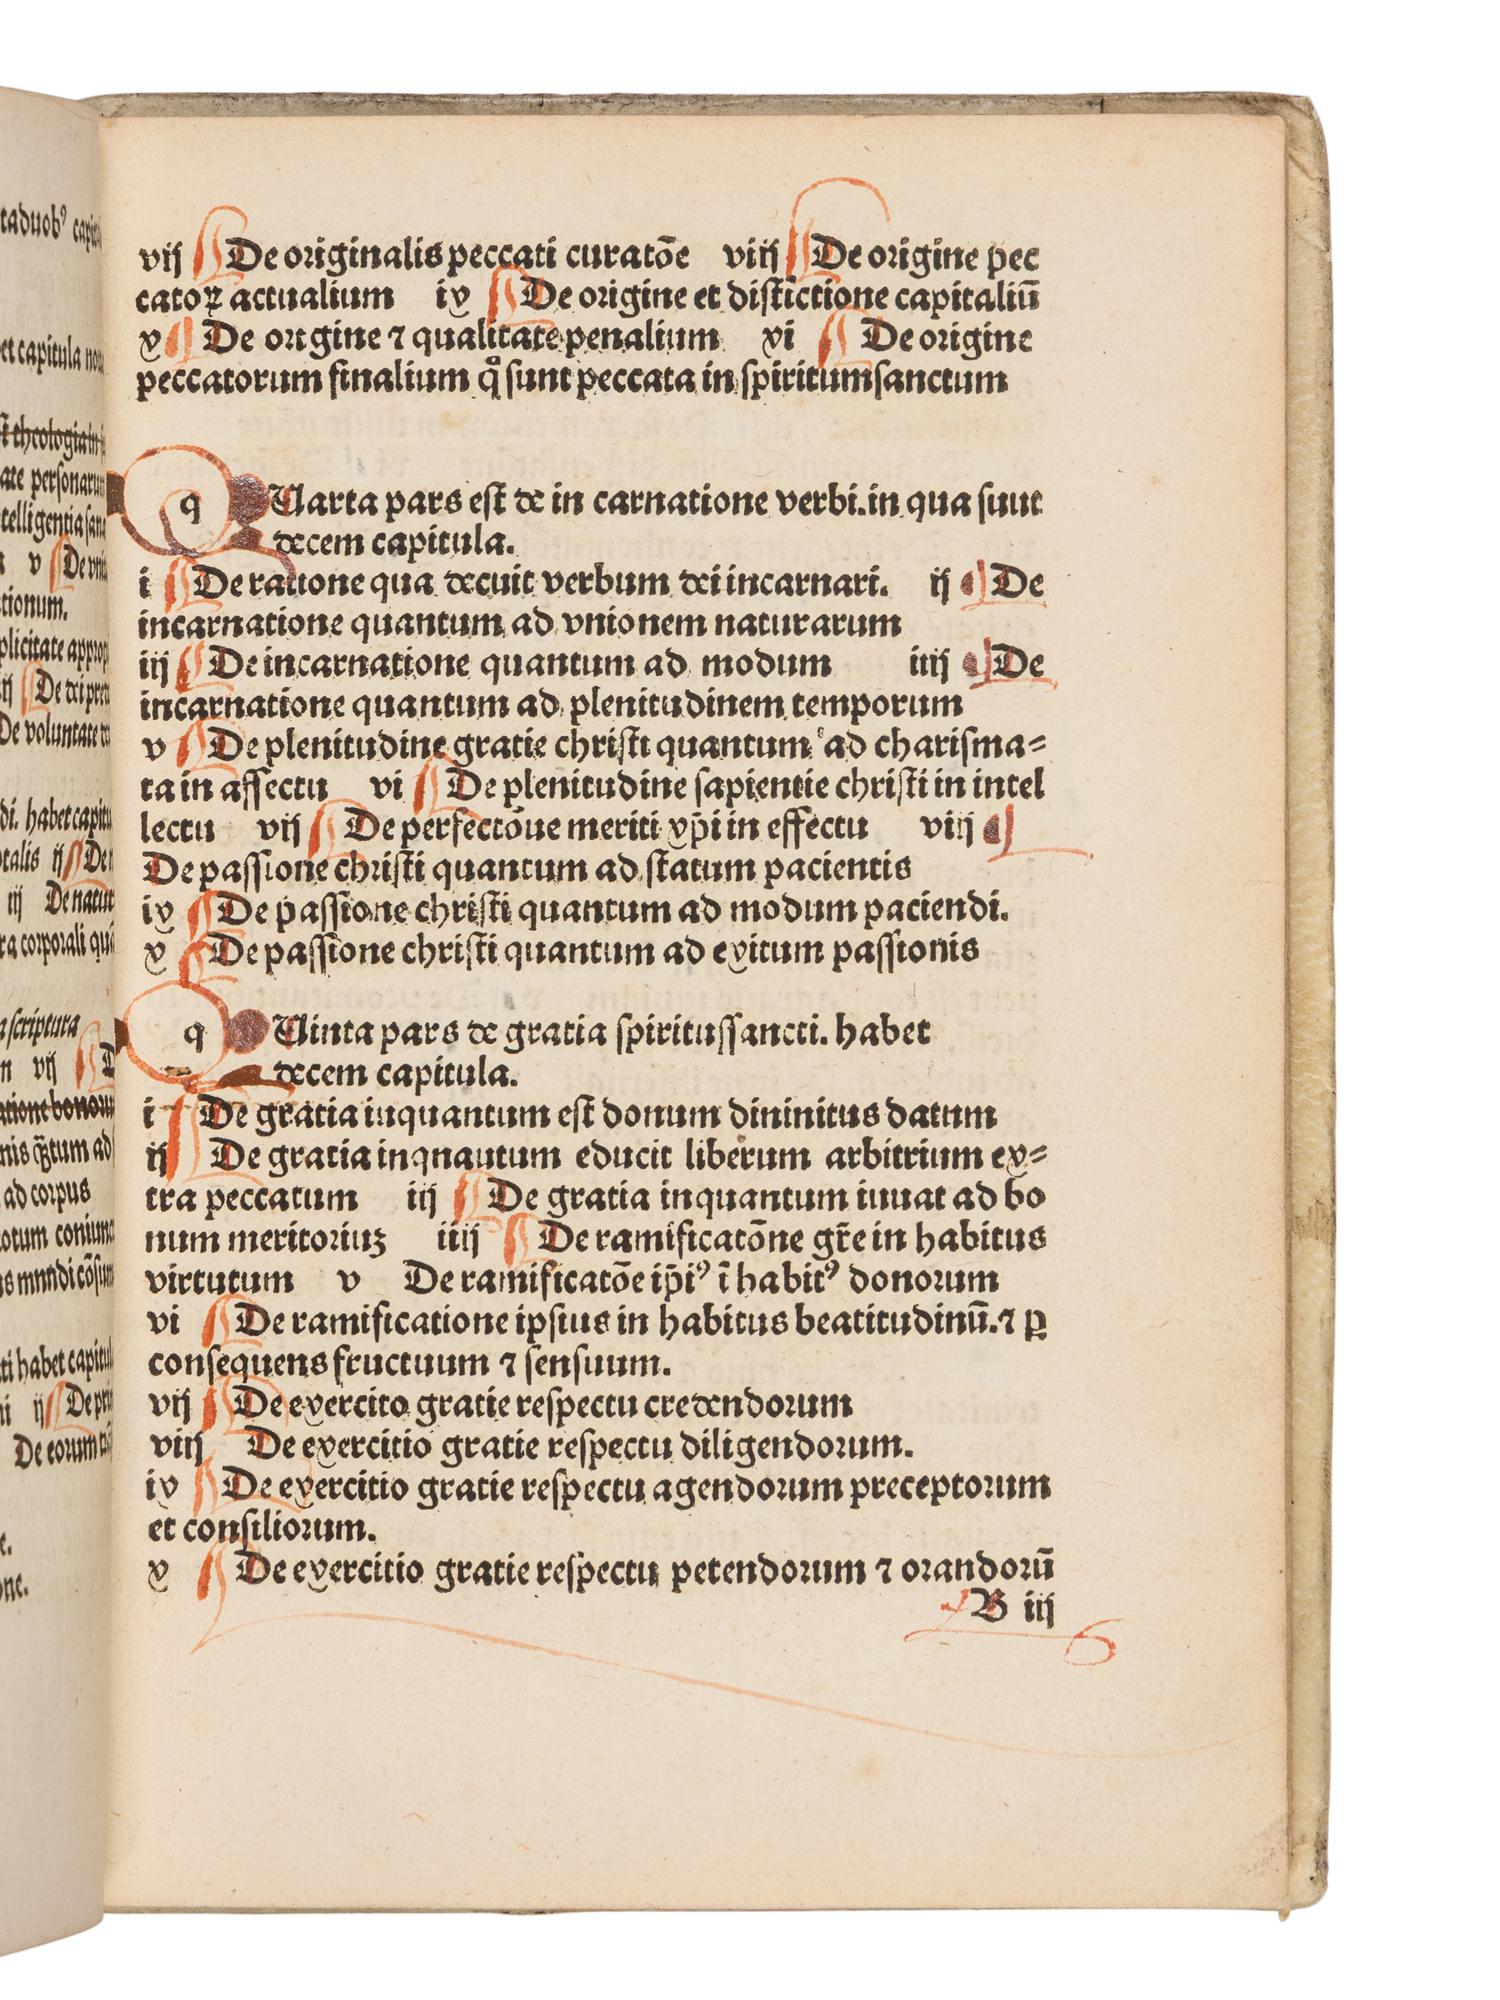 taduobꝰ capitu
et capitula nou
st theologia in s
ate personarum
telligentia sana
v De vni
tionum.
plicitate approp
iij De dei pre
De voluntate
di. habet capitu
talis ij De
iij De natur
ra corporali quā
a scriptura
n vij D
atione bonoru
nis q̄tum ad
ad corpus
totum coniunc
us mnndi cōsum
ti habet capitul
ni ij De pri
De eorum
e.
one.
vij De originalis peccati curatōe viij De origine pec
catoꝝ actualium ix De origine et distictione capitaliū
x De origine ⁊ qualitate penalium xi De origine
peccatorum finalium q̊ sunt peccata in spiritumsanctum
q Uarta pars est de in carnatione verbi.in qua suut
decem capitula.
i De ratione qua decuit verbum dei incarnari. ij De
incarnatione quantum ad vnionem naturarum
iij De incarnatione quantum ad modum iiij De
incarnatione quantum ad plenitudinem temporum
v De plenitudine gratie christi quantum ad charisma⸗
ta in affectu vi De plenitudine sapientie christi in intel
lectu vij De perfectōue meriti xp̄i in effectu viij
De passione christi quantum ad statum pacientis
ix De passione christi quantum ad modum paciendi.
x De passione christi quantum ad exitum passionis
q Uinta pars de gratia spiritussancti. habet
decem capitula.
i De gratia iuquantum est donum dininitus datum
ij De gratia inqnautum educit liberum arbitrium ex⸗
tra peccatum iij De gratia inquantum iuuat ad bo
num meritoriuꝫ iiij De ramificatōne gr̄e in habitus
virtutum v De ramificatōe ip̄iꝰ ī habitꝰ donorum
vi De ramificatione ipsius in habitus beatitudinū.⁊ ꝑ
consequens fructuum ⁊ sensuum.
vij De exercito gratie respectu credendorum
viij De exercitio gratie respectu diligendorum.
ix De exercitio gratie respectu agendorum preceptorum
et consiliorum.
x De exercitio gratie respectu petendorum ⁊ orandorū
B iij